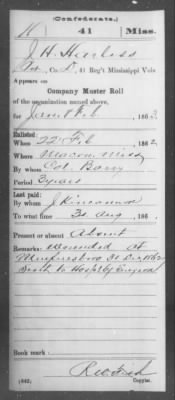 (Confederate.)
H 41 Miss.
J. H. Harless
Pvt, Co. D, 41 Reg't Mississippi Vols
Appears on
Company Muster Roll
of the organization named above,
for Jan & Feb, 1863.
Enlisted:
When 22 Feb, 1862
Where Macon Miss
By whom Col. Barry
Period 3 years
Last paid:
By whom J. Kincannon
To what time 31 Aug, 186
Present or absent Absent
Remarks: Wounded at
Murfreesboro 31 Dec 1862
Sent to Hospital by Surgeon
Book mark:
(642)
Copyist.